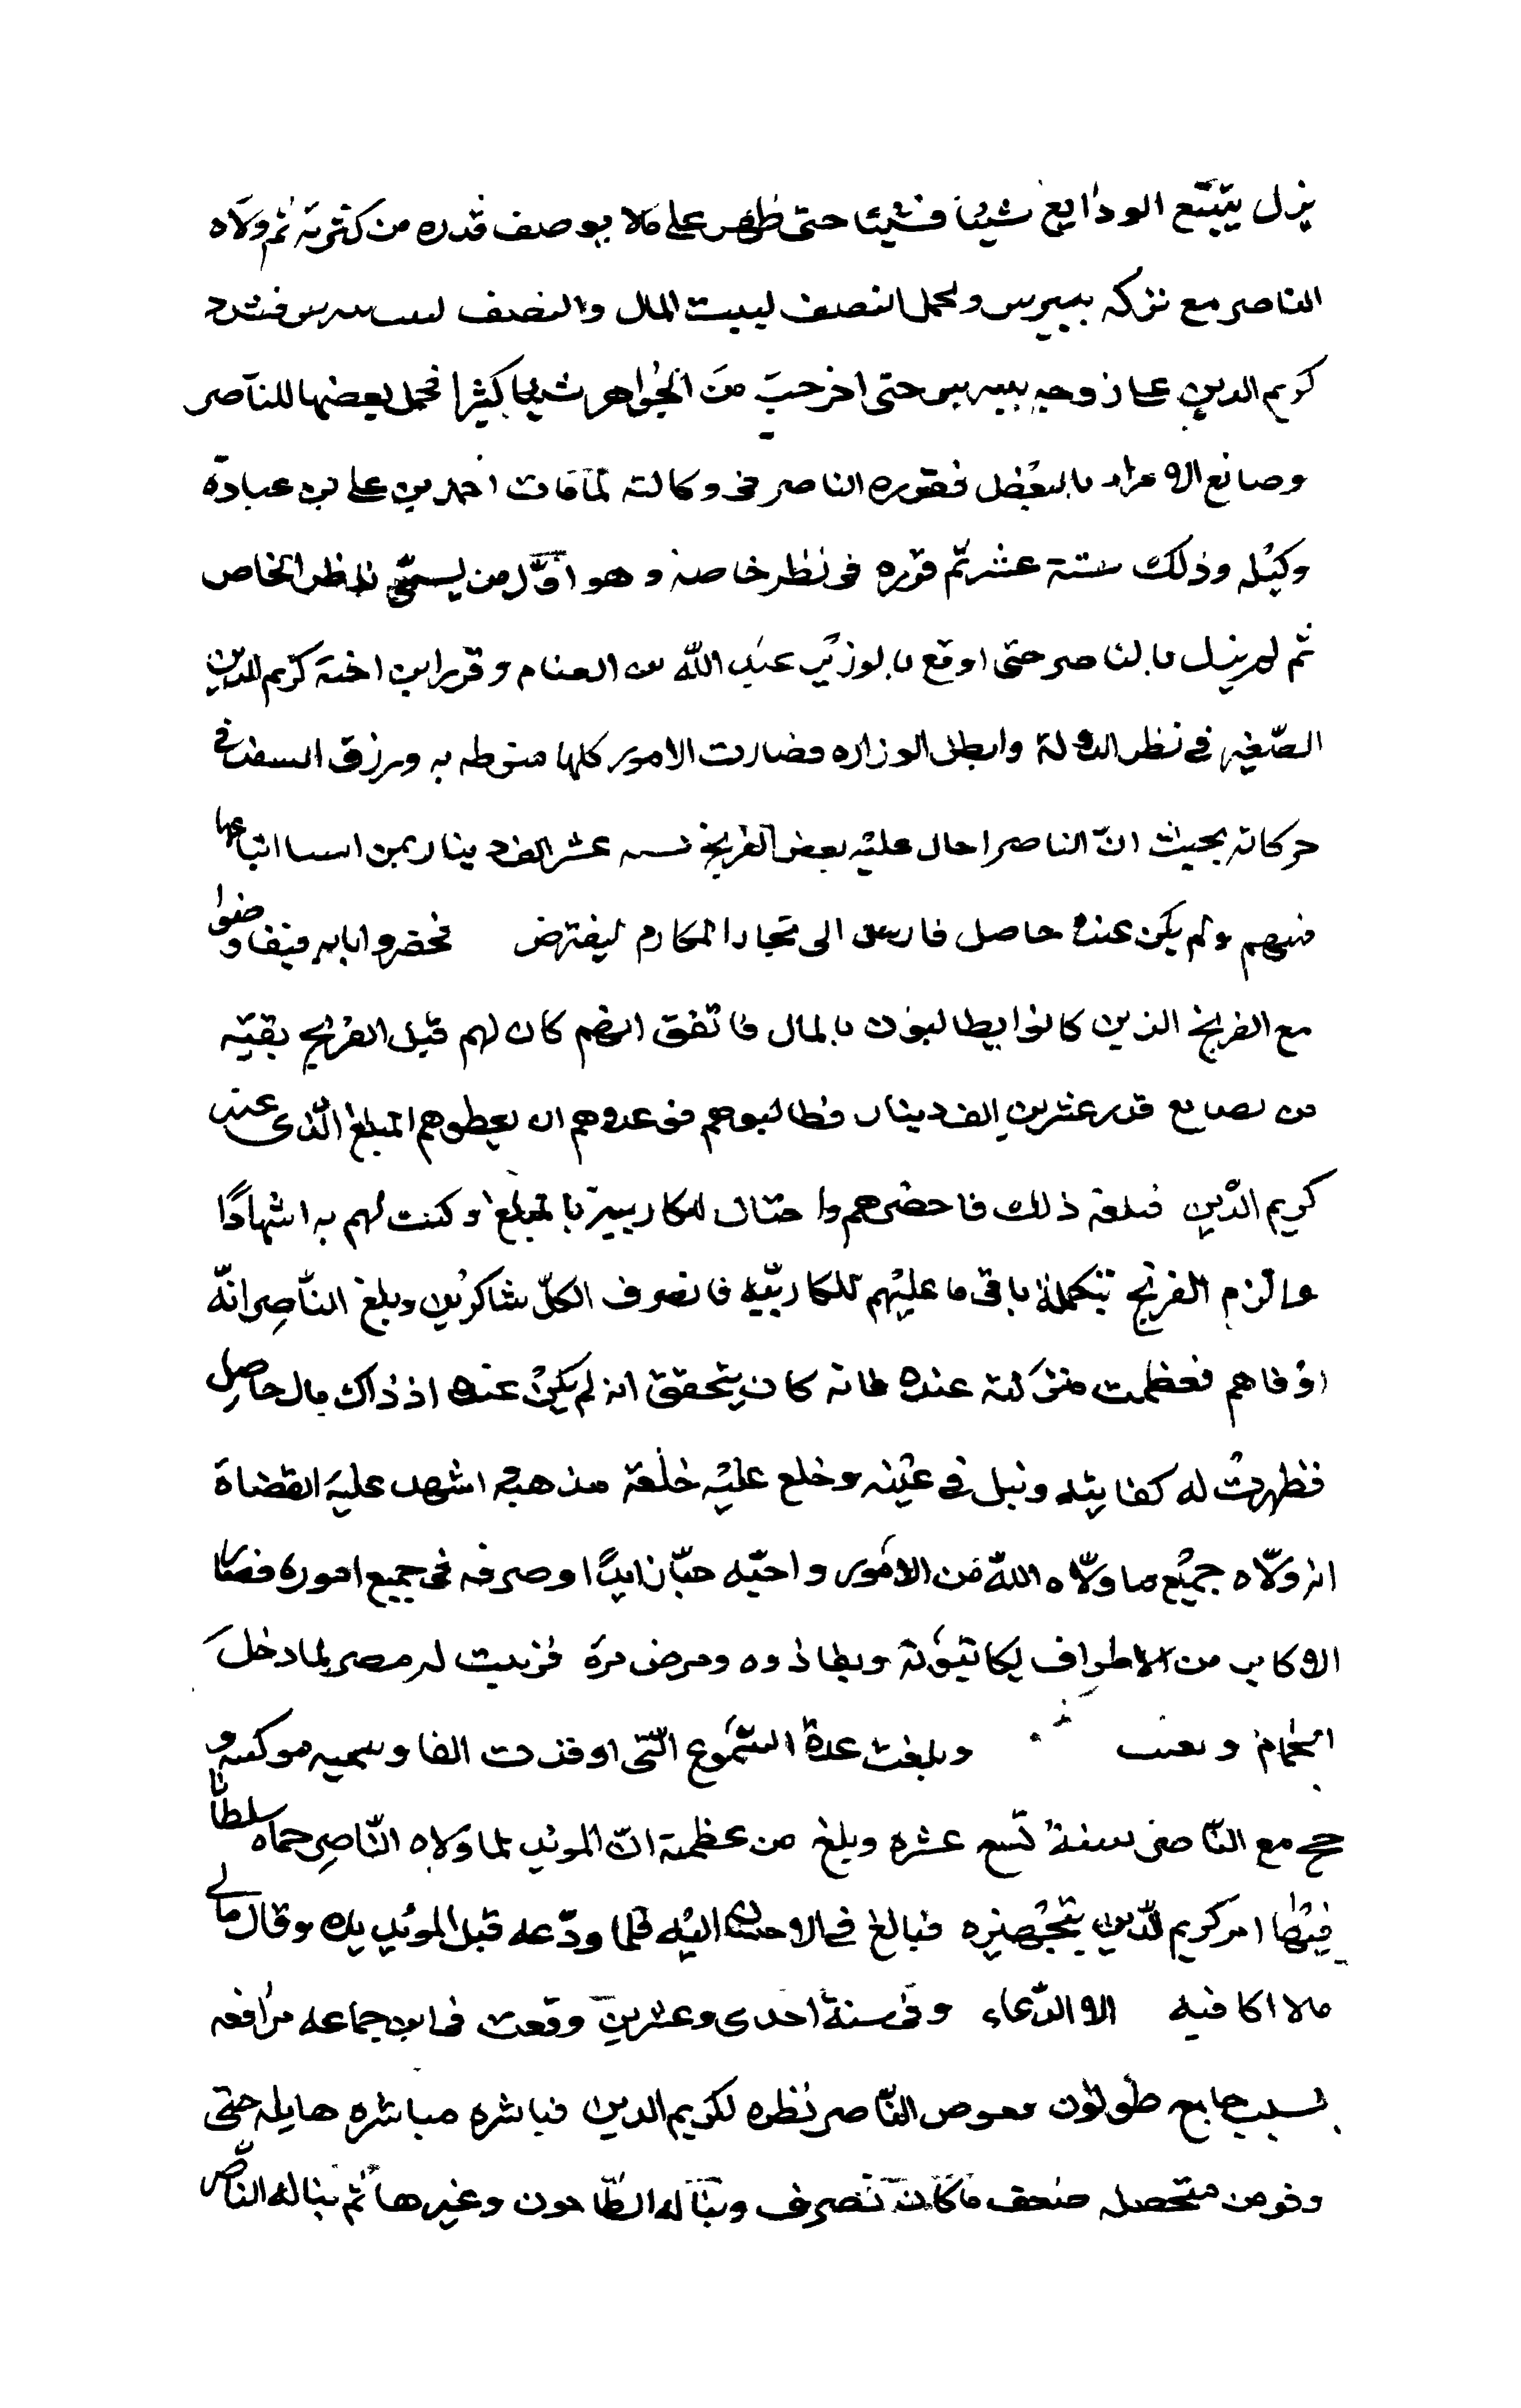 يزل يتتبع الودايع شيئا فشيئا حتى ظهر على مالا يوصف قدره من كثرته ثم ولاه
الناصر مع تركه بيبرس ولحمل النصف لبيت المال والنصف فشدد
كريم الدين على زوجه بيبرس حتى اخرجت من الجواهر شيئا كثيرا فحمل بعضها للناصر
وصانع الامراء بالبعض فقرره الناصر في وكالته لما مات احمد بن علي بن عبادة
وكيله وذلك ستة عشر ثم قرره في نظر خاصه وهو اول من يسمى ناظر الخاص
ثم لم يزل بالناصر حتى اوقع بالوزير عبد الله بن الغنام وقرر ابن اخته كريم الدين
الصغير في نظر الدولة وابطل الوزاره فصارت الامور كلها منوطه به ورزق السعد في
حركاته بحيث ان الناصر احال عليه بعض الفرنج عشر الف دينار ثمن اتباعها
منهم ولم يكن عنده حاصل فارسل الى تجار الكارم ليقترض فحضروا بابه فتفاوضوا
مع الفرنج الذين كانوا يطالبون بالمال فاتفق انهم كان لهم قبل الفرنج بقيه
من بضايع قدر عشرين الف دينار فطالبوهم فوعدوهم ان يعطوهم المبلغ الذى عند
كريم الدين فبلغه ذلك فاحضرهم واحتال للكارمية بالمبلغ وكتبت لهم به اشهادا
والزم الفرنج بتكملة باقى ما عليهم للكارميه فانصرف الكل شاكرين وبلغ الناصر انه
اوفاهم فعظمت منزلته عنده فانه كان يتحقق انه لم يكن عنده اذ ذاك مال حاصل
فظهرت له كفايته ونبل في عينه وخلع عليه خلعة مذهبه اشهد عليه القضاة
انه ولاه جميع ما ولاه الله من الامور واحبه حبا زايدا وصرفه في جميع اموره فصار
الاكابر من الاطراف يكاتبونه ويهاذوه ومرض مرة فزينت له مصر لما دخل
الحمام وبلغت عدة الشموع التى اوقدت الفا وسميه موكبيه و
حج مع الناصر سنة تسع عشره وبلغ من عظمته ان الموئيد لما ولاه الناصر حماه سلطانا
فيها امر كريم الدين بتجهيزه فبالغ في الاحسان اليه فلما ودعه قبل الموئيد يده وقال مالى
مالا اكافيه الا الدعاء وفى سنة احدى وعشرين وقعت فى ابن جماعه مرافعه
بسبب جامع طولون فعوض الناصر نظره لكريم الدين فباشره مباشره هايله حتى
وفر من متحصله ضعف ما كان تصرف وبنا له الطاحون وغيرها ثم بنا له الناصر